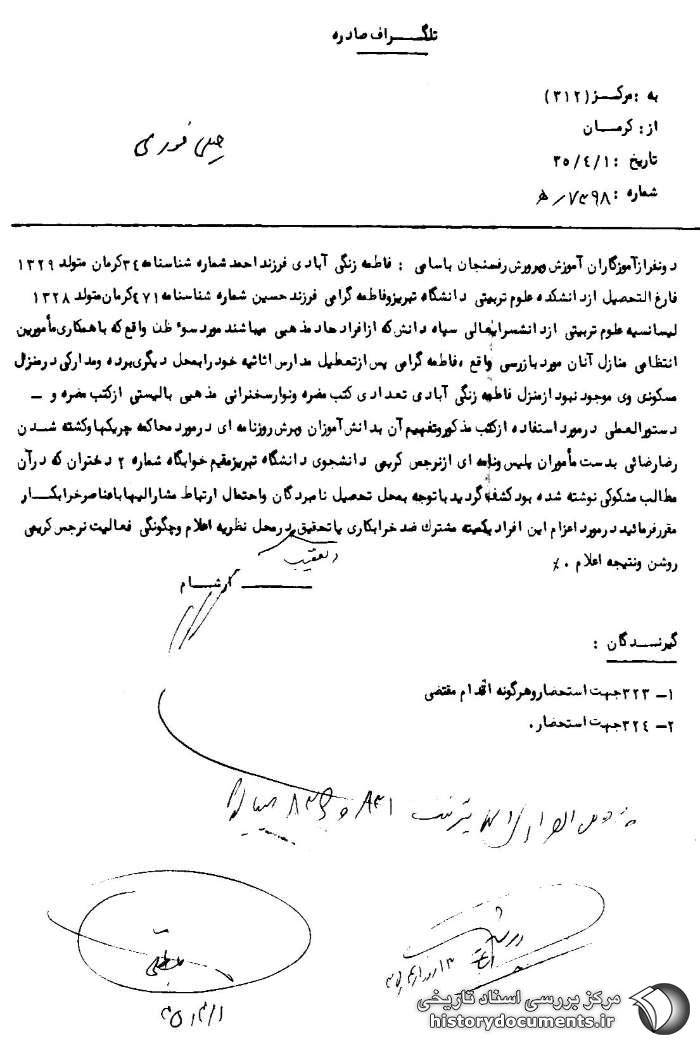 تلگـــراف صادره
به : مرکــز (۳۱۲)
از : کرمــان
تاریخ : ۳۵/۴/۱
شماره : ۷۴۹۸/ه
خیلی فوری
دونفرازآموزگاران آموزش وپرورش رفسنجان باسامی : فاطمه زنگی آبادی فرزند احمد شماره شناسنامه ۳۴ کرمان متولد ۱۳۲۹
فارغ التحصیل ازدانشکده علوم تربیتی دانشگاه تبریزوفاطمه گرامی فرزند حسین شماره شناسنامه ۴۷۱ کرمان متولد ۱۳۲۸
لیسانسیه علوم تربیتی ازدانشسرایعالی سپاه دانش که ازافراد حاد مذهبی میباشند مورد سوء ظن واقع که باهمکاری مأمورین
انتظامی منازل آنان مورد بازرسی واقع ، فاطمه گرامی پس ازتعطیل مدارس اثاثیه خود رابمحل دیگری برده ومدارکی درمنزل
مسکونی وی موجود نبود ازمنزل فاطمه زنگی آبادی تعدادی کتب مضره ونوارسخنرانی مذهبی بالیستی ازکتب مضره و ــ
دستورالعطی درمورد استفاده ازکتب مذکوروتفهیم آن بدانش آموزان وبرش روزنامه ای درمورد محاکمه چریکها وکشته شــدن
رضا رضائی بدست مأموران پلیس ونامه ای ازنرجس کریمی دانشجوی دانشگاه تبریزمقیم خوابگاه شماره ۲ دختران که درآن
مطالب مشکوکی نوشته شده بود کشف گردید باتوجه بمحل تحصیل نامبردگان واحتمال ارتباط مشارالیها باعناصرخرابکــار
مقررفرمائید درمورد اعزام این افراد بکمیته مشترک ضد خرابکاری یاتحقیق درمحل نظریه اعلام وچگونگی فعالیت نرجس کریمی
روشن ونتیجه اعلام ٠٪
تعقیب
آرشــام
گیرنــدگان :
۱ــ ۳۲۳ جهت استحضاروهرگونه اقدام مقتضی
۲ــ ۳۲۴ جهت استحضار .
۸۳۱ و
۳۵/۴/۱
مرکز بررسی اسناد تاریخی
historydocuments.ir